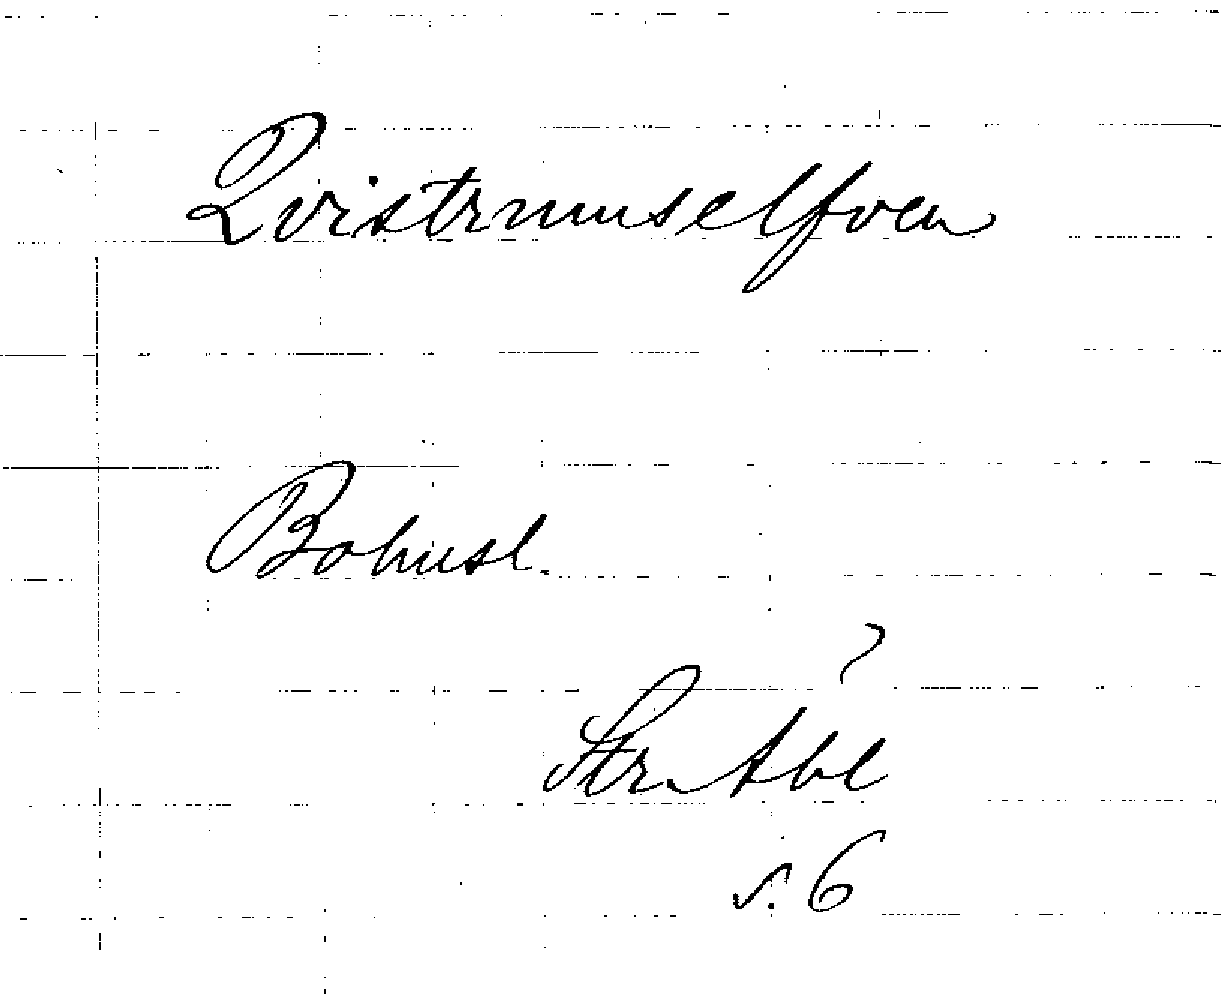 Qvistrumselfven
Bohusl.
?
Str. Abl
s. 6